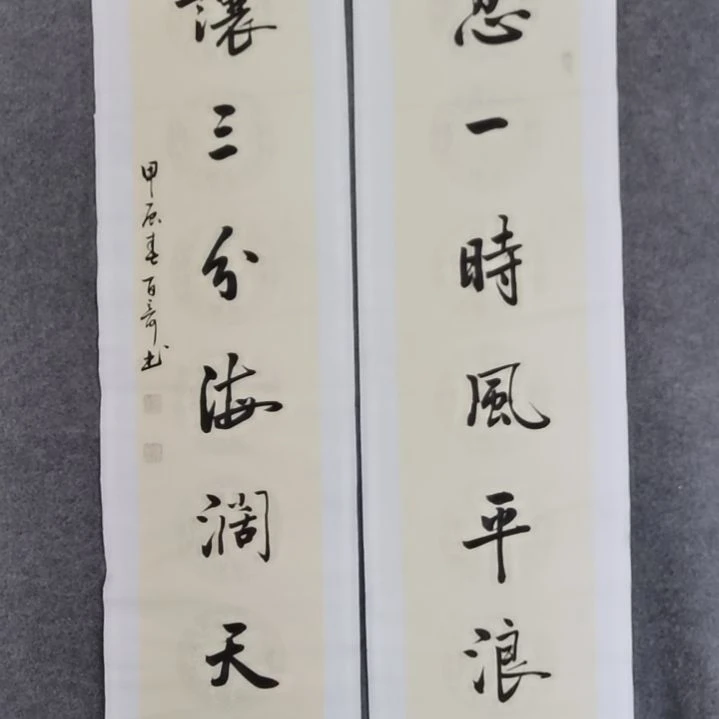 忍一時風平浪
讓三分海濶天
甲辰春百奇书